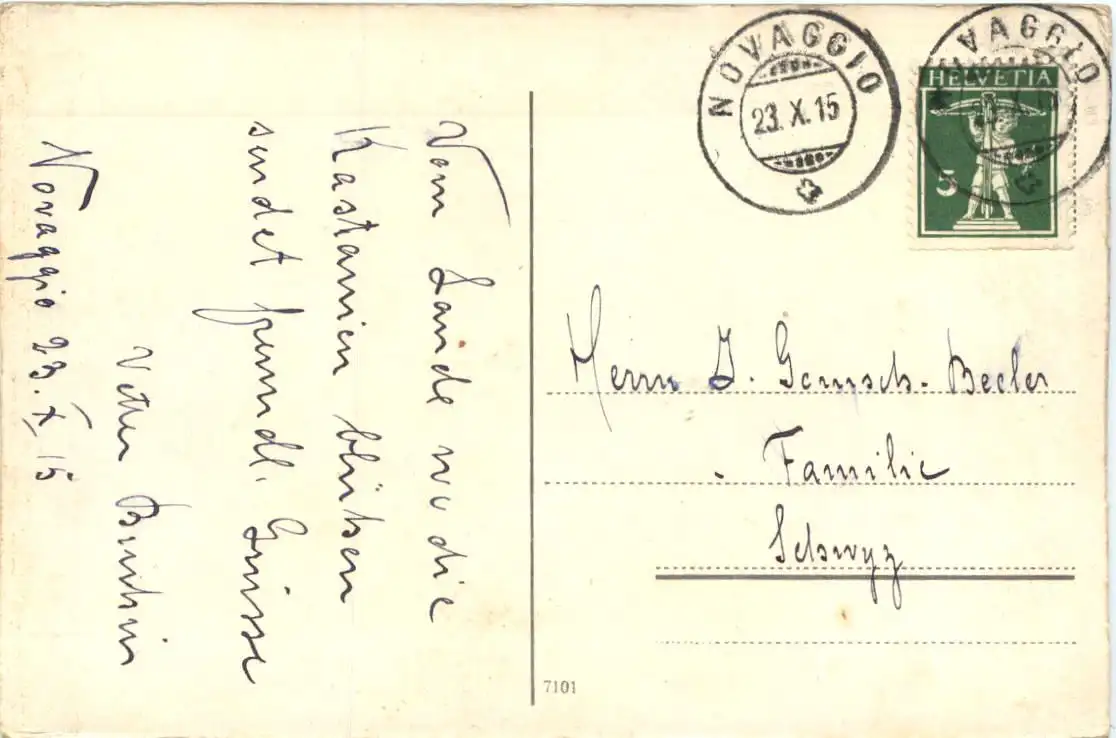 Vom Lande wo die
Kastanien blühen
sendet freundl. Grüsse
Vetter
Novaggio 23. X 15
NOVAGGIO
23. X. 15
NOVAGGIO
HELVETIA
5
Herrn J. Gemsch-Beeler
Familie
Schwyz
7101